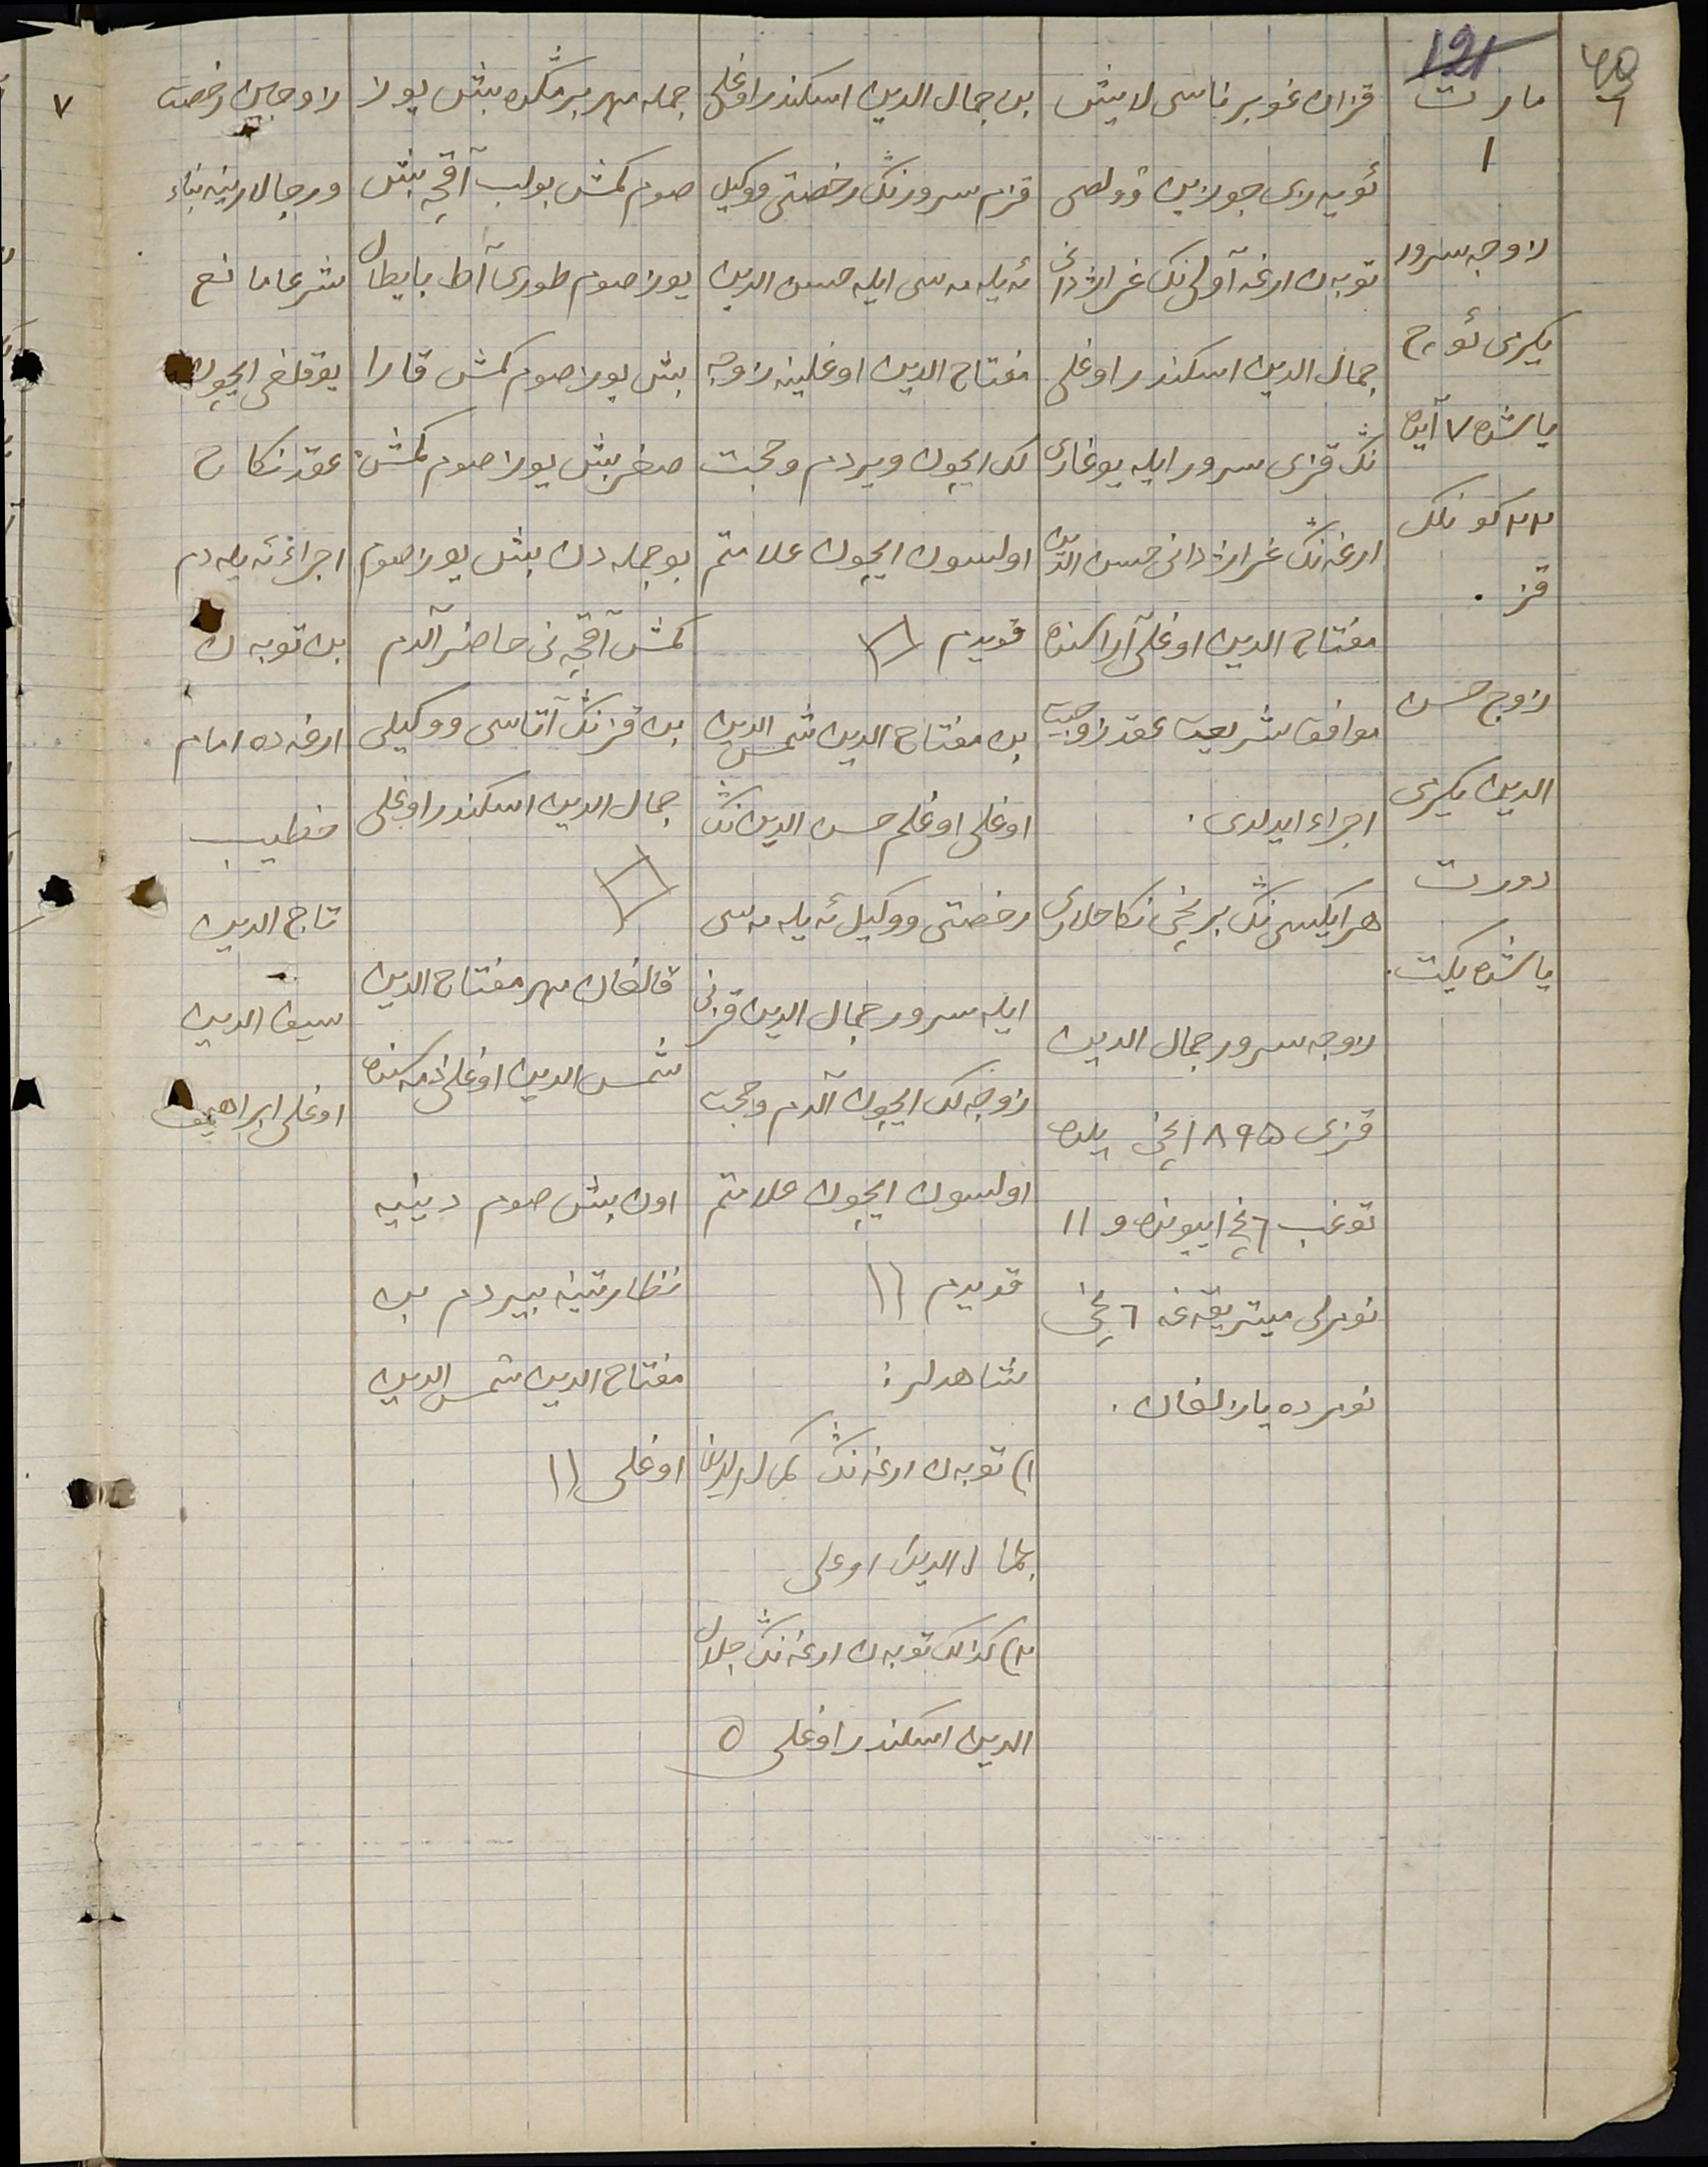 121
٦
مارت
١
زوجه سرور
یکرمی ئوچ
یاشنده ٧ آیده
٢٢ کونلک
قز .
زوج حسن
الدین یکرمی
دورت
یاشنده یکت.
قزان غوبرناسی لایش
ئویه زی جورزین وولصی
توبه ن ارغه آولی نک غراژدانی
جمال الدین اسکندر اوغلی
ننگ قزی سرور ایله یوغاری
ارغه ننگ غراژدانی حسن الدین
مفتاح الدین اوغلی آراسنده
موافق شریعت عقد زوجیت
اجراء ایدلدی .
هر ایکیسی ننگ برنچی نکاحلاری
زوجه سرور جمال الدین
قزی ١٨٩٥ نچی یلده
توغب ٦ نچی اییونده و ١١
نومرلی میتریقه غه ٦ نچی
نومرده یازلغان .
بن جمال الدین اسکندر اوغلی
قزم سرور ننگ رخصتی ووکیل
ئه یله مه سی ایله حسن الدین
مفتاح الدین اوغلینه زوجه
لک ایچون ویردم وحجت
اولسون ایچون علامتم
قویدم
بن مفتاح الدین شمس الدین
اوغلی اوغلم حسن الدین ننگ
رخصتی ووکیل ئه یله مه سی
ایله سرور جمال الدین قزنی
زوجه لک ایچون آلدم وحجت
اولسون ایچون علامتم
قویدم ١١
شاهدلر:
١) توبه ن ارغه ننگ کمال الدین
جمال الدین اوغلی
٢) کذلک توبه ن ارغه ننگ جلال
الدین اسکندر اوغلی
جمله مهر بر مکده بیش یوز
صوم کمش بولب آقچه بیش
یوز صوم طوری آط بایطال
بیش یوز صوم کمش قارا
صغر بیش یوز صوم کمش
بو جمله دن بیش یوز صوم
کمش آقچه نی حاضر آلدم
بن قز ننگ آتاسی ووکیلی
جمال الدین اسکندر اوغلی
قالغان مهر مفتاح الدین
شمس الدین اوغلی ذمه سنده
اون بیش صوم دینیه
نظارتینه بیردم بن
مفتاح الدین شمس الدین
اوغلی ١١
زوجین رخصت
ورجالارینه بناء
شرعا مانع
یوقلغی ایچون
عقد نکاح
اجراء ئه یله دم
بن توبه ن
ارغه ده امام
خطیب
تاج الدین
سیف الدین
اوغلی ابراهیموف
٧